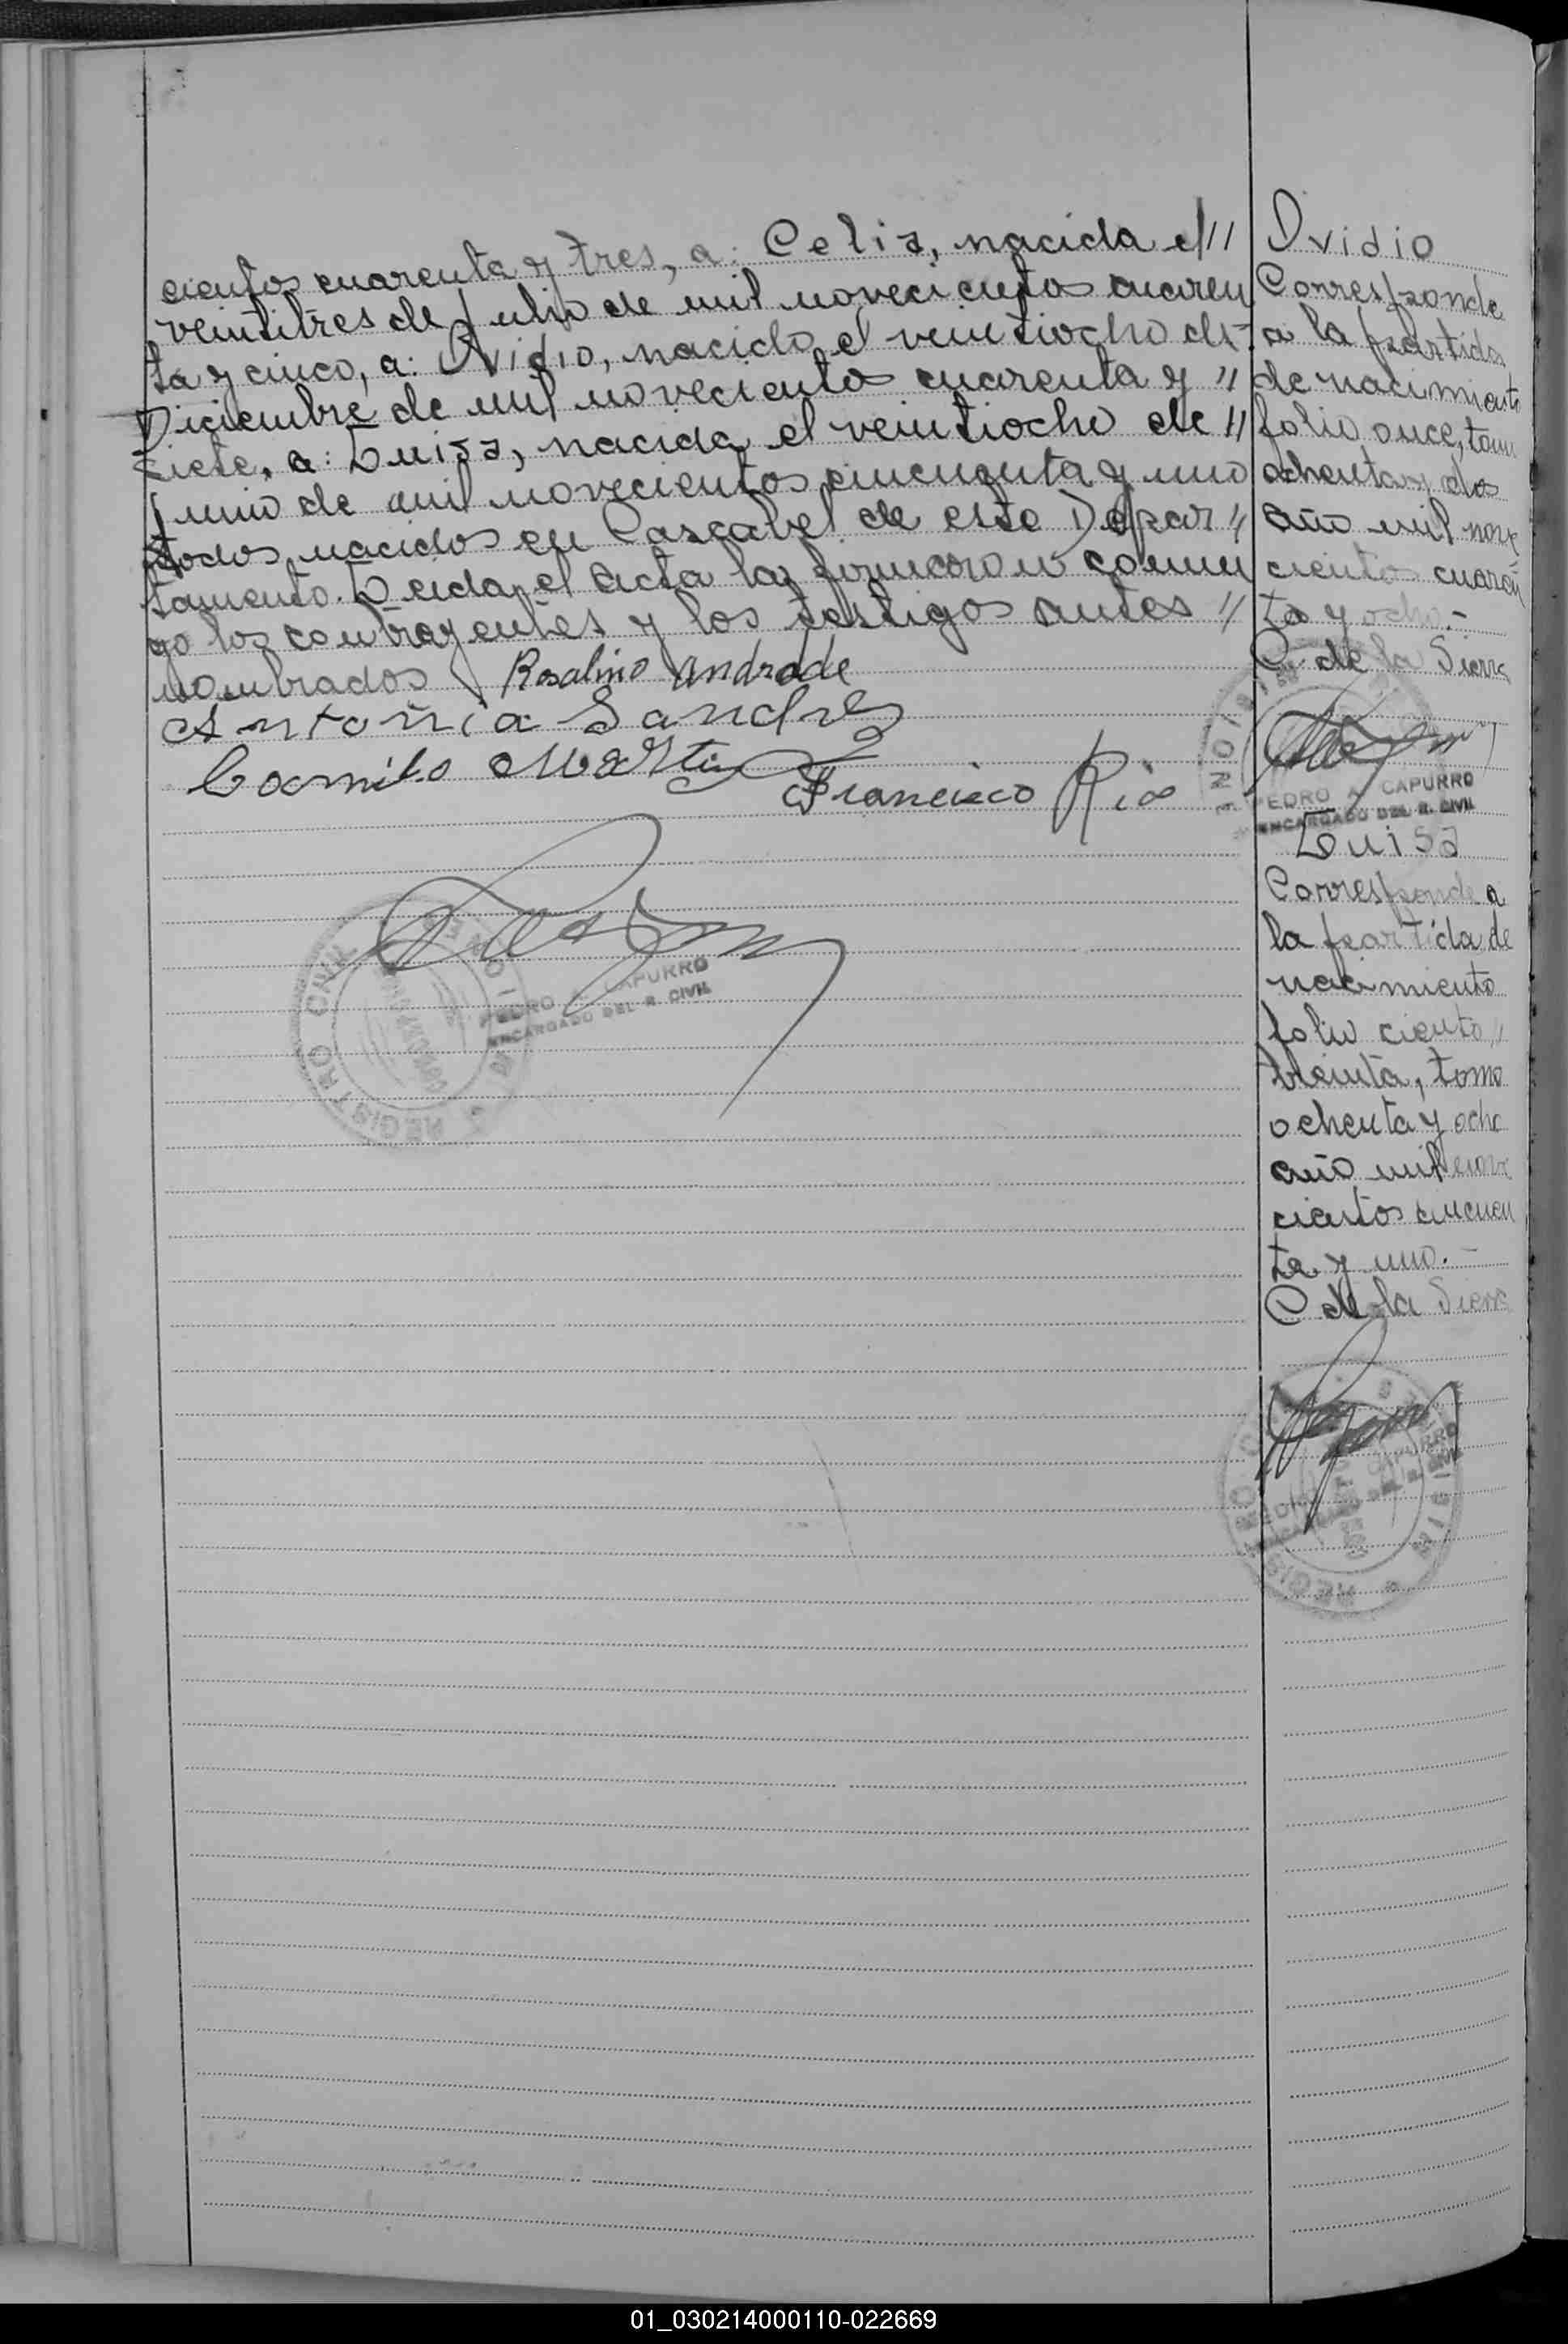 cientos cuarenta y tres, a: Celia, nacida el //
veintitres de Julio de mil novecientos cuaren
ta y cinco, a: Ovidio, nacido el veintiocho de
Diciembre de mil novecientos cuarenta y //
siete, a: Luisa, nacida el veintiocho de //
Junio de mil novecientos cincuenta y uno
todos nacidos en Cascabel de este Depar //
tamento. Leida el acta la firmaron conmi
go los contrayentes y los testigos antes //
nombrados
Rosalino Andrade
Antonia Sandres
Camilo Martinez
Francisco Rios
REGISTRO CIVIL
PEDRO A CAPURRO
ENCARGADO DEL R. CIVIL
Ovidio
Corresponde
a la partida
de nacimiento
folio once, tomo
ochenta y dos
año mil nove
cientos cuaren
ta y ocho.-
C. de la Sierra
PEDRO A CAPURRO
ENCARGADO DEL R. CIVIL
Luisa
Corresponde a
la partida de
nacimiento
folio ciento //
treinta, tomo
ochenta y ocho
año mil nove
cientos cincuen
ta y uno.-
C de la Sierra
PEDRO A CAPURRO
ENCARGADO DEL R. CIVIL
01_030214000110-022669